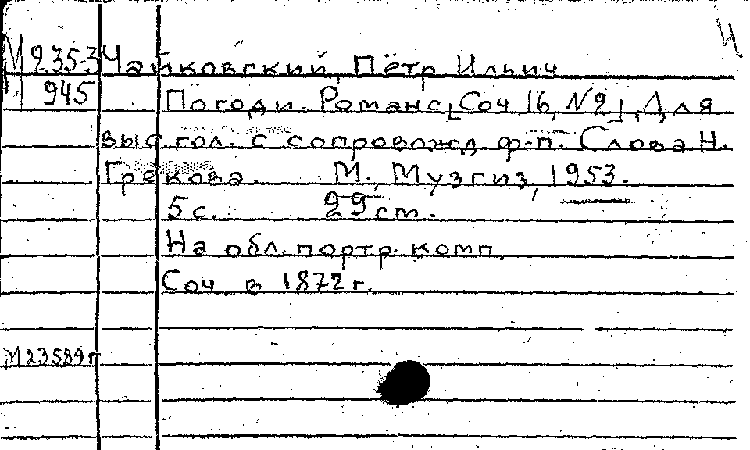 Ч
М 235-3 Чайковский, Пётр Ильич
945 Погоди. Романс, Соч 16, №2, Для
выс. гол. с сопровожд. ф-п. Слова Н.
Грекова. М., Музгиз, 1953.
5 с. 29 см.
На обл. портр. комп.
Соч. в 1872 г.
М23589г